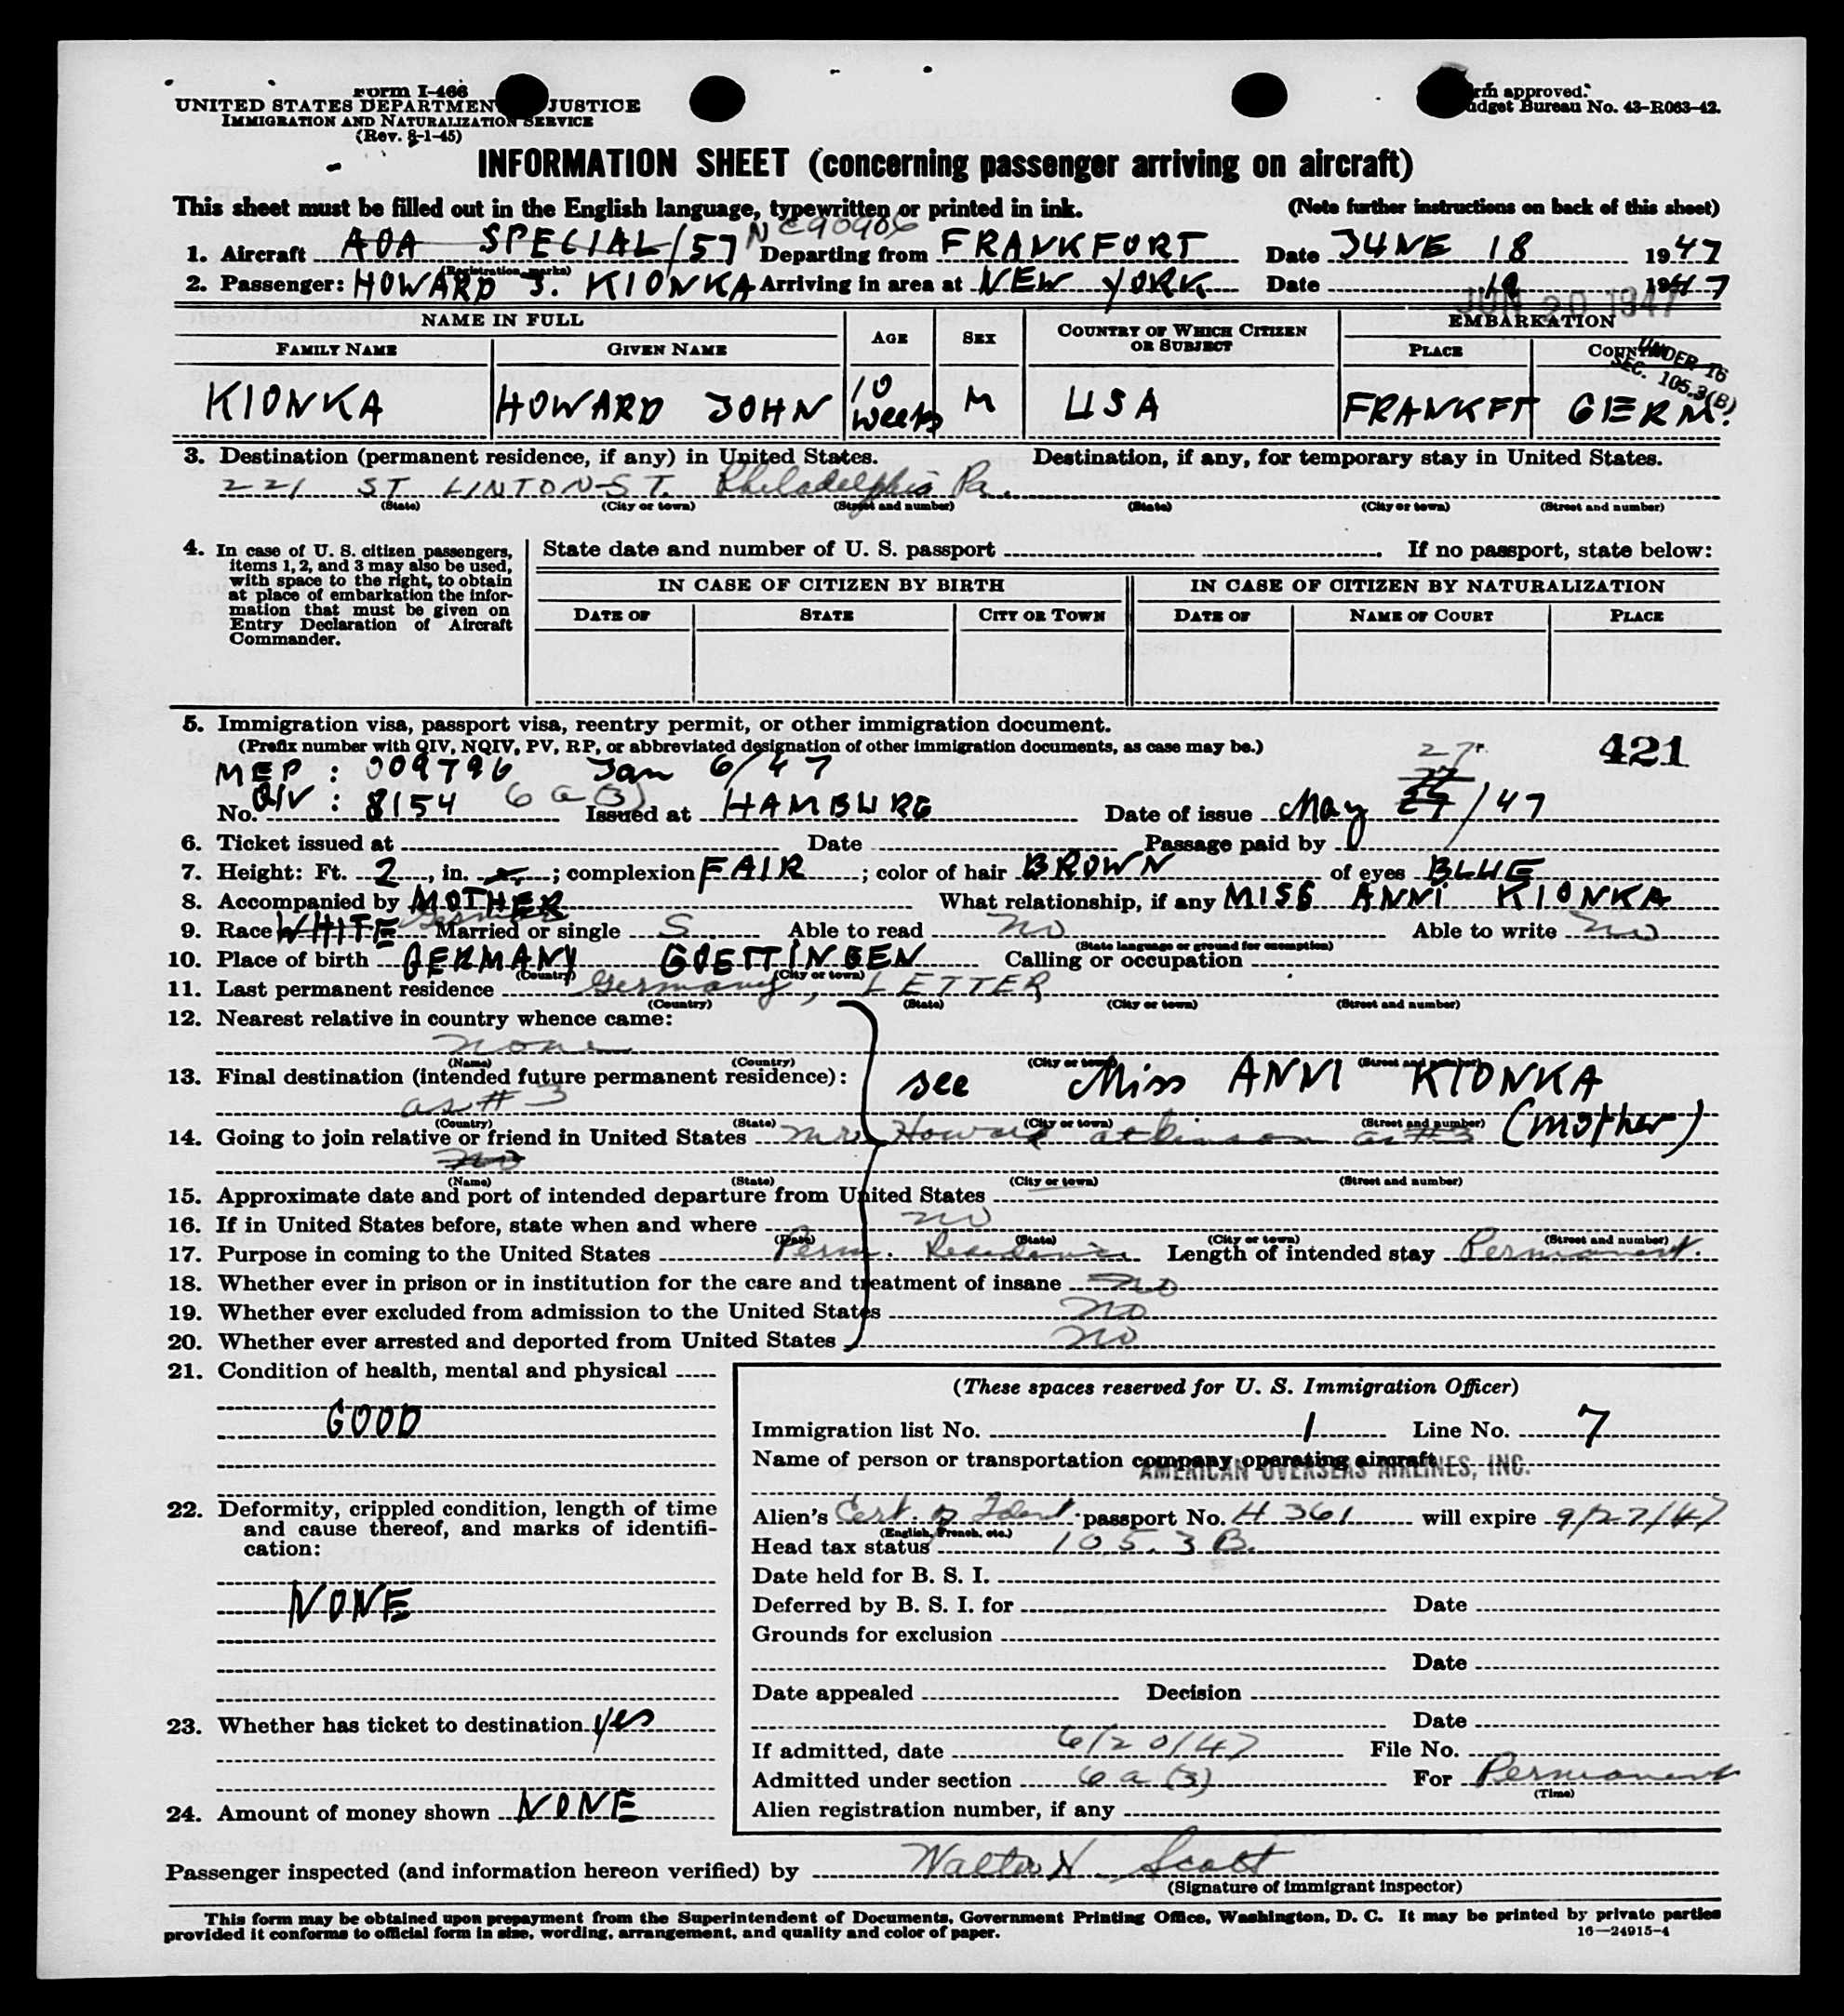 Form I-466
UNITED STATES DEPARTMENT JUSTICE
IMMIGRATION AND NATURALIZATION SERVICE
(Rev. 8-1-45)
approved.
Budget Bureau No. 43-R063-42.
INFORMATION SHEET (concerning passenger arriving on aircraft)
This sheet must be filled out in the English language, typewritten or printed in ink. (Note further instructions on back of this sheet)
NC90906
1. Aircraft AOA SPECIAL/57 Departing from FRANKFURT Date JUNE 18 1947
(Registration marks)
2. Passenger: HOWARD J. KIONKA Arriving in area at NEW YORK Date 19 1947
JUN 20 1947
NAME IN FULL AGE SEX COUNTRY OF WHICH CITIZEN OR SUBJECT EMBARKATION
FAMILY NAME GIVEN NAME PLACE COUNTRY
UNDER 16
SEC. 105.3(B)
KIONKA HOWARD JOHN 10 weeks M USA FRANKFT GERM.
3. Destination (permanent residence, if any) in United States. Destination, if any, for temporary stay in United States.
221 ST LINTON ST. Philadelphia Pa.
(State) (City or town) (Street and number) (State) (City or town) (Street and number)
4. In case of U. S. citizen passengers, items 1, 2, and 3 may also be used, with space to the right, to obtain at place of embarkation the information that must be given on Entry Declaration of Aircraft Commander.
State date and number of U. S. passport . If no passport, state below:
IN CASE OF CITIZEN BY BIRTH IN CASE OF CITIZEN BY NATURALIZATION
DATE OF STATE CITY OR TOWN DATE OF NAME OF COURT PLACE
5. Immigration visa, passport visa, reentry permit, or other immigration document.
(Prefix number with QIV, NQIV, PV, RP, or abbreviated designation of other immigration documents, as case may be.)
421
MEP : 009796 Jan 6/47
27
No. QIV : 8154 6 a (3) Issued at HAMBURG Date of issue May 27/47
6. Ticket issued at Date Passage paid by
7. Height: Ft. 2, in. ; complexion FAIR; color of hair BROWN of eyes BLUE
8. Accompanied by MOTHER What relationship, if any MISS ANNI KIONKA
9. Race WHITE German Married or single S. Able to read no Able to write no
(State language or ground for exemption)
10. Place of birth GERMANY GOETTINGEN Calling or occupation
(Country) (City or town)
11. Last permanent residence Germany, LETTER
(Country) (State) (City or town) (Street and number)
12. Nearest relative in country whence came:
none
(Name) (Country) (City or town) (Street and number)
13. Final destination (intended future permanent residence): see Miss ANNI KIONKA
as # 3
(Country) (State) (City or town) (Street and number)
(mother)
14. Going to join relative or friend in United States Mr. Howard Atkinson as #3
no
(Name) (State) (City or town) (Street and number)
15. Approximate date and port of intended departure from United States
16. If in United States before, state when and where no
(Date) (State) (City or town) (Street and number)
17. Purpose in coming to the United States Perm. Residence Length of intended stay Permanent.
18. Whether ever in prison or in institution for the care and treatment of insane no
19. Whether ever excluded from admission to the United States no
20. Whether ever arrested and deported from United States no
21. Condition of health, mental and physical
GOOD
22. Deformity, crippled condition, length of time and cause thereof, and marks of identification:
NONE
23. Whether has ticket to destination yes
24. Amount of money shown NONE
(These spaces reserved for U. S. Immigration Officer)
Immigration list No. 1 Line No. 7
Name of person or transportation company operating aircraft
AMERICAN OVERSEAS AIRLINES, INC.
Alien's Cert. of Ident. passport No. H 361 will expire 9/27/47
(English, French, etc.)
Head tax status 105.3 B.
Date held for B. S. I.
Deferred by B. S. I. for Date
Grounds for exclusion
Date
Date appealed Decision
Date
If admitted, date 6/20/47 File No.
Admitted under section 6 a (3) For Permanent
(Time)
Alien registration number, if any
Passenger inspected (and information hereon verified) by Walter N Scott
(Signature of immigrant inspector)
This form may be obtained upon prepayment from the Superintendent of Documents, Government Printing Office, Washington, D. C. It may be printed by private parties
provided it conforms to official form in size, wording, arrangement, and quality and color of paper. 16—24915-4